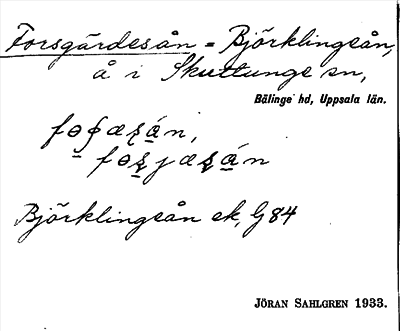 Forsgärdesån = Björklingeån,
å i Skuttunge sn,
Bälinge hd, Uppsala län.
Björklingeån ek, G 84
JÖRAN SAHLGREN 1933.